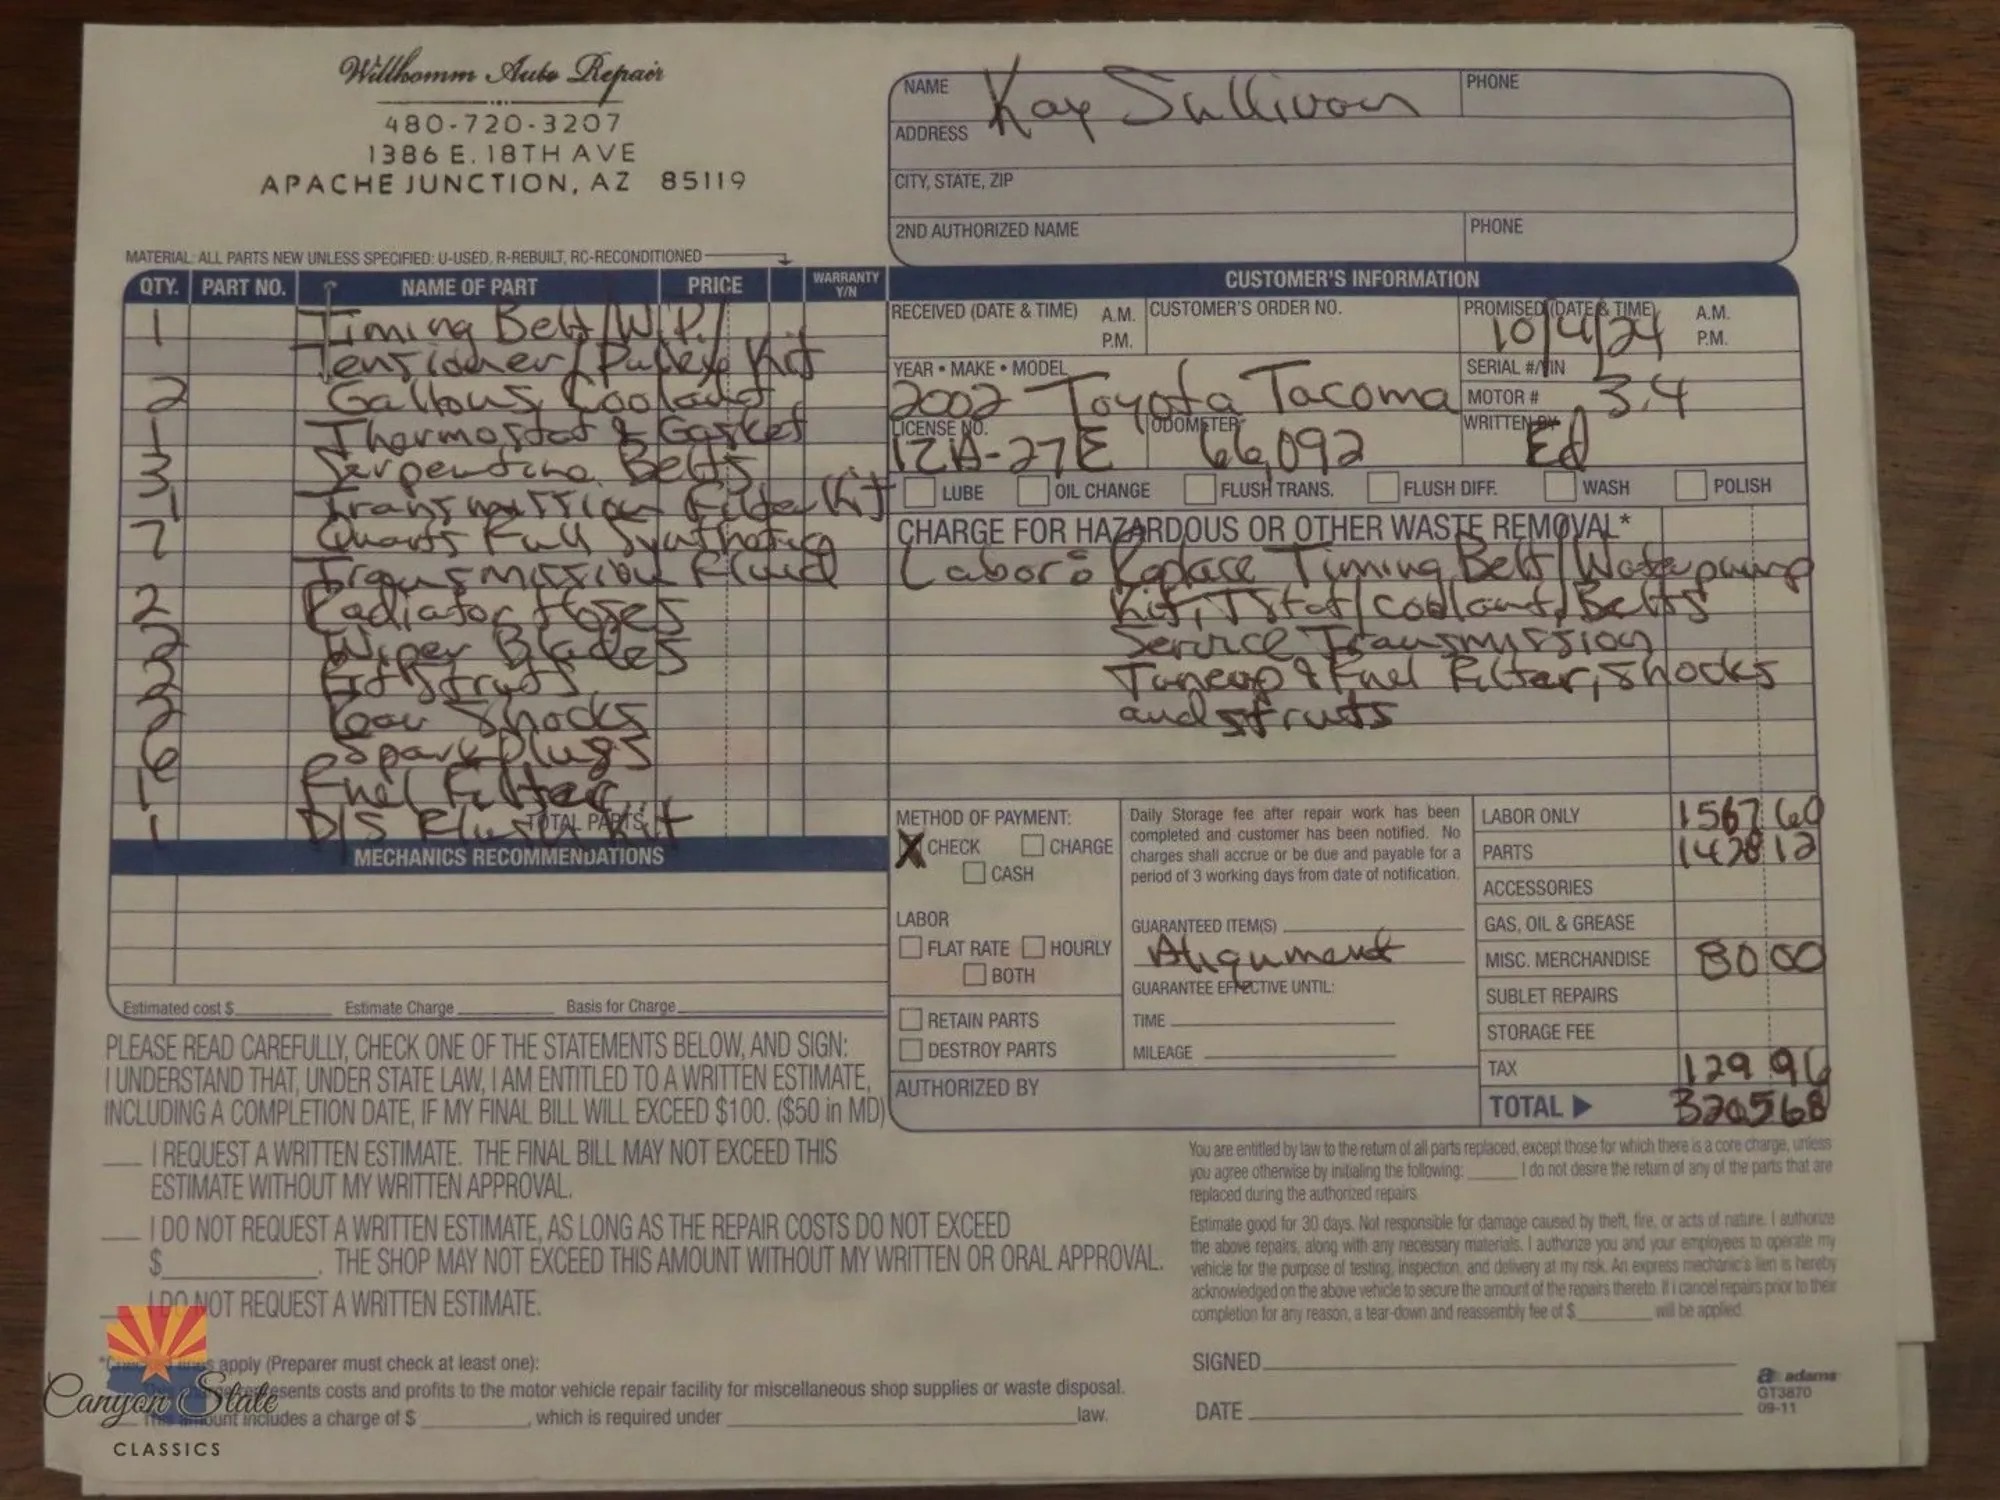 Willhomm Auto Repair
480-720-3207
1386 E. 18TH AVE
APACHE JUNCTION, AZ 85119
NAME Kay Sullivan PHONE
ADDRESS
CITY, STATE, ZIP
2ND AUTHORIZED NAME PHONE
MATERIAL: ALL PARTS NEW UNLESS SPECIFIED: U-USED, R-REBUILT, RC-RECONDITIONED
QTY. PART NO. NAME OF PART PRICE WARRANTY Y/N
1 Timing Belt/W.P./
Tensioner/Pulley Kit
2 Gallons Coolant
1 Thermostat & Gasket
3 Serpentine Belts
1 Transmission Filter Kit
7 Quarts Full Synthetic
Transmission Fluid
2 Radiator Hoses
2 Wiper Blades
2 Frt Struts
2 Rear Shocks
6 Spark Plugs
1 Fuel Filter
1 D/S Flush Kit
TOTAL PARTS
MECHANICS RECOMMENDATIONS
Estimated cost $ Estimate Charge Basis for Charge
CUSTOMER'S INFORMATION
RECEIVED (DATE & TIME) A.M. P.M. CUSTOMER'S ORDER NO. PROMISED (DATE & TIME) A.M. P.M.
10/4/24
YEAR • MAKE • MODEL SERIAL #/VIN
2002 Toyota Tacoma MOTOR # 3.4
LICENSE NO. ODOMETER WRITTEN BY
IZA-27E 66,092 Ed
LUBE OIL CHANGE FLUSH TRANS. FLUSH DIFF. WASH POLISH
CHARGE FOR HAZARDOUS OR OTHER WASTE REMOVAL*
Labor: Replace Timing Belt/Waterpump
Kit, TStat/Coolant, Belts
Service Transmission
Tuneup & Fuel Filter, Shocks
and struts
METHOD OF PAYMENT:
X CHECK CHARGE
CASH
LABOR
FLAT RATE HOURLY
BOTH
RETAIN PARTS
DESTROY PARTS
AUTHORIZED BY
Daily Storage fee after repair work has been
completed and customer has been notified. No
charges shall accrue or be due and payable for a
period of 3 working days from date of notification.
GUARANTEED ITEM(S)
Alignment
GUARANTEE EFFECTIVE UNTIL:
TIME
MILEAGE
LABOR ONLY 1567 60
PARTS 1428 12
ACCESSORIES
GAS, OIL & GREASE
MISC. MERCHANDISE 80 00
SUBLET REPAIRS
STORAGE FEE
TAX 129 96
TOTAL 3205 68
PLEASE READ CAREFULLY, CHECK ONE OF THE STATEMENTS BELOW, AND SIGN:
I UNDERSTAND THAT, UNDER STATE LAW, I AM ENTITLED TO A WRITTEN ESTIMATE,
INCLUDING A COMPLETION DATE, IF MY FINAL BILL WILL EXCEED $100. ($50 in MD)
I REQUEST A WRITTEN ESTIMATE. THE FINAL BILL MAY NOT EXCEED THIS
ESTIMATE WITHOUT MY WRITTEN APPROVAL.
I DO NOT REQUEST A WRITTEN ESTIMATE, AS LONG AS THE REPAIR COSTS DO NOT EXCEED
$ . THE SHOP MAY NOT EXCEED THIS AMOUNT WITHOUT MY WRITTEN OR ORAL APPROVAL.
I DO NOT REQUEST A WRITTEN ESTIMATE.
apply (Preparer must check at least one):
costs and profits to the motor vehicle repair facility for miscellaneous shop supplies or waste disposal.
This amount includes a charge of $ , which is required under law.
You are entitled by law to the return of all parts replaced, except those for which there is a core charge, unless
you agree otherwise by initialing the following: I do not desire the return of any of the parts that are
replaced during the authorized repairs.
Estimate good for 30 days. Not responsible for damage caused by theft, fire, or acts of nature. I authorize
the above repairs, along with any necessary materials. I authorize you and your employees to operate my
vehicle for the purpose of testing, inspection, and delivery at my risk. An express mechanic's lien is hereby
acknowledged on the above vehicle to secure the amount of the repairs thereto. If I cancel repairs prior to their
completion for any reason, a tear-down and reassembly fee of $ will be applied.
SIGNED
DATE
adams
GT3870
09-11
Canyon State
CLASSICS